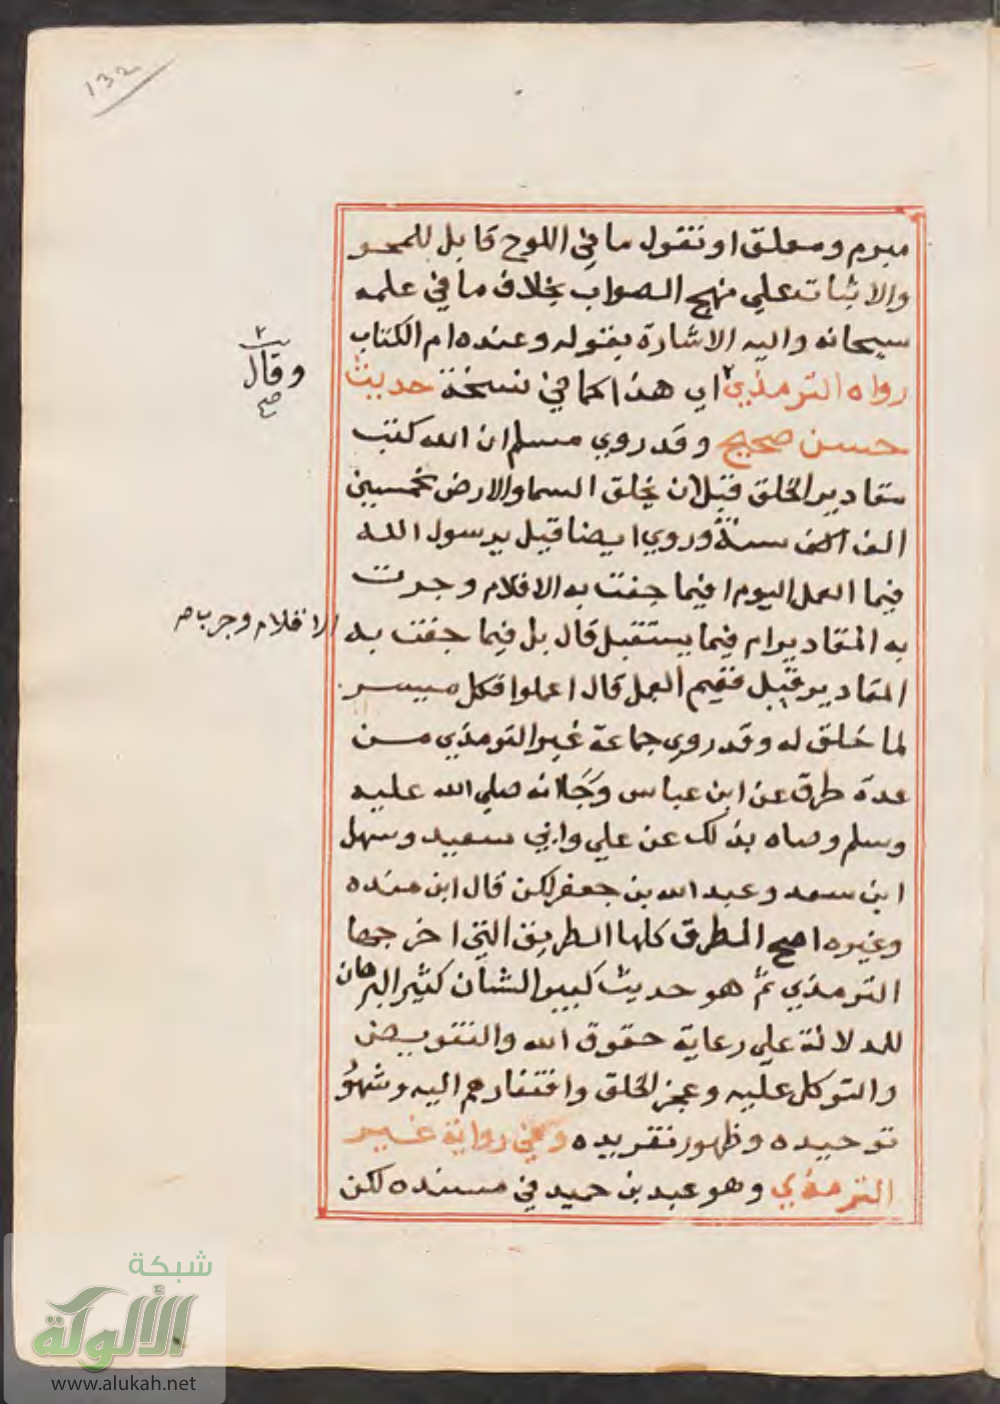 132
مبرم ومعلق او نقول ما في اللوح قابل للمحو
والاثبات علي منهج الصواب بخلاف ما في علمه
سبحانه واليه الاشارة بقوله وعنده ام الكتاب
رواه الترمذي اي هذا كما في نسخة حديث
وقال
صح
حسن صحيح وقد روي مسلم ان الله كتب
مقادير الخلق قبل ان يخلق السما والارض بخمسين
الف الف سنة وروي ايضا قيل يرسول الله
فيما العمل اليوم افيما جفت به الاقلام وجرت
به المقادير ام فيما يستقبل قال بل فيما جفت به
الاقلام وجرت به
المقادير قيل ففيم العمل قال اعملوا فكل ميسر
لما خلق له وقد روي جماعة غير الترمذي من
عدة طرق عن ابن عباس وجا انه صلي الله عليه
وسلم وصاه بذلك عن علي وابي سعيد وسهل
ابن سعد وعبد الله بن جعفر لكن قال ابن منده
وغيره اصح الطرق كلها الطريق التي اخرجها
الترمذي ثم هو حديث كبير الشان كثير البرهان
للدلالة علي رعاية حقوق الله والتفويض
والتوكل عليه وعجز الخلق وافتقارهم اليه وشهو
توحيده وظهور تفريده وفي رواية غير
الترمذي وهو عبد بن حميد في مسنده لكن
شبكة
الألوكة
www.alukah.net